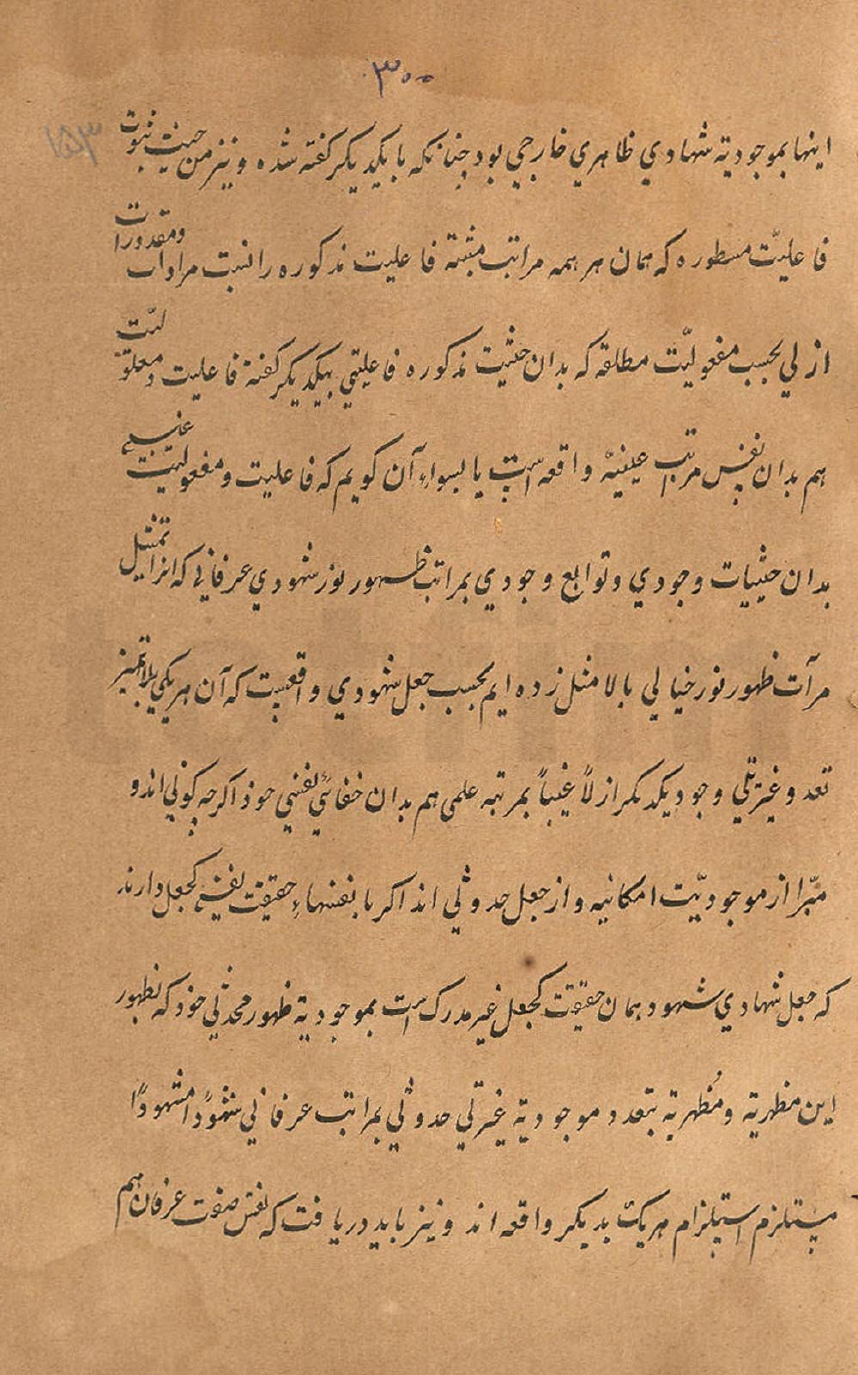 ۳۰۰
۱۵۳
اینها بموجودیة شهادي ظاهري خارجي بود چنانکه با یکدیکر کفته شده و نیز من حیث ثبوت
فاعلیّت مسطوره که همان هر همه مراتب مثبتة فاعلیت مذکوره را نسبت مرادات ومقدورات
ازلي بحسب مفعولیّت مطلقه که بدان حثیت مذکوره فاعلیتي بهیکدیکر کفتة فاعلیت و معلولیّت
هم بدان نفس مراتب عینیة واقعه است یا بسواء آن کویم که فاعلیت و مفعولیت غیبي
بدان حثیات وجودي و توابع وجودي بمراتب ظهور نور شهودي عرفاني که انرا تمثیل
مرآت ظهور نور خیالي بالا مثل زده ایم بحسب جعل شهودي واقعیت که آن هر یکي بلا تمیز
تعدد غیریّتي وجود یکدیکر ازلاً غیباً بمرتبه علمی هم بدان خفائي نفسي خود اکرچه کوني اند و
مبرّا از موجودیّت امکانیه و از جعل حدوثي اند اکر با نفسهاء حقیقت نفسي کجعل دارند
که جعل شهادي شهود همان حقیقت کجعل غیر مدرک است بموجودیة ظهور محدثي خود که بظهور
این مظهریة و مُظهریة بتعدد موجودیة غیریّتي حدوثي بمراتب عرفاني شهوداً مشهوداً
مستلزم استلزام هر یک بدیکر واقعه اند و نیز باید دریافت که نفس صفت عرفان هم